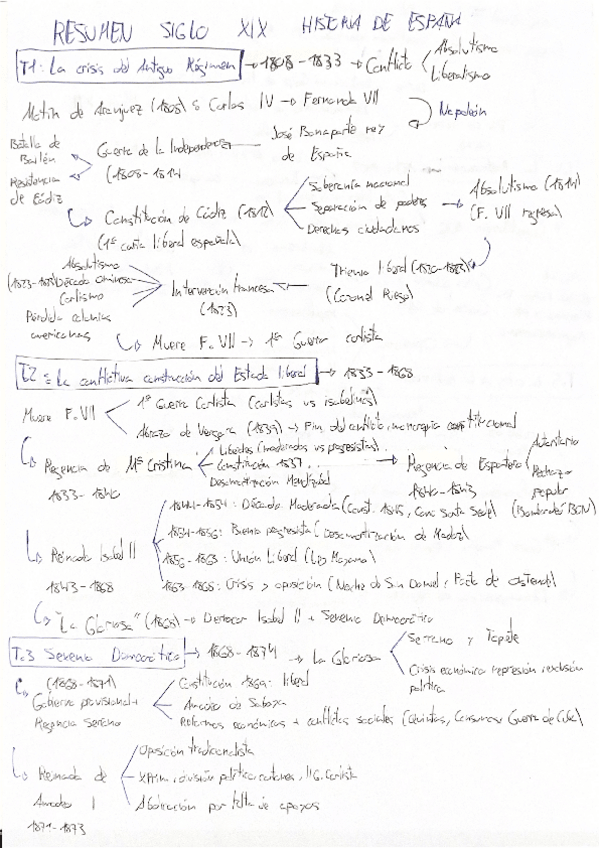 RESUMEN SIGLO XIX HISTORIA DE ESPAÑA
T1: La crisis del Antiguo Régimen → 1808-1833 → Conflicto Absolutismo
Liberalismo
Motín de Aranjuez (1808) Carlos IV → Fernando VII Napoleón
Batalla de Bailén Guerra de la Independencia José Bonaparte rey
de España
Resistencia de Cádiz (1808-1814
Constitución de Cádiz (1812) Soberanía nacional Absolutismo (1814)
Separación de poderes → (F. VII regresa)
(1ª carta liberal española) Derechos ciudadanos
Absolutismo
Década ominosa Intervención francesa Trienio liberal (1820-1823)
Carlismo (1823) (Coronel Riego)
Pérdida colonias
americanas
Muere F. VII → 1ª Guerra carlista
T.2: La conflictiva construcción del Estado liberal → 1833-1868
Muere F. VII 1ª Guerra Carlista (carlistas vs isabelinos)
Abrazo de Vergara (1839) → Fin del conflicto, monarquía constitucional
Regencia de Mª Cristina Liberales (moderados vs progresistas)
Constitución 1837 → Regencia de Espartero Autoritario
Desamortización Mendizábal Rechazo popular
1833-1840 1840-1843 (Bombardeo BCN)
1844-1854: Década Moderada (Const. 1845, Conc Santa Sede)
1854-1856: Bienio progresista (Desamortización de Madoz)
Reinado Isabel II 1856-1863: Unión Liberal
1843-1868 1863-1868: Crisis y oposición (Noche de San Daniel, Pacto de Ostende)
"La Gloriosa" (1868) → Derrocar Isabel II + Sexenio Democrático
T.3 Sexenio Democrático → 1868-1874 → La Gloriosa Serrano y Topete
Crisis económica represión
política
(1868-1871) Constitución 1869: liberal
Gobierno provisional + Amadeo de Saboya
Regencia Serrano Reformas económicas + conflictos sociales (Quintas, Consumos y Guerra de Cuba)
Oposición tradicionalista
Reinado de X Prim, división política, III G. Carlista
Amadeo I Abdicación por falta de apoyos
1871-1873